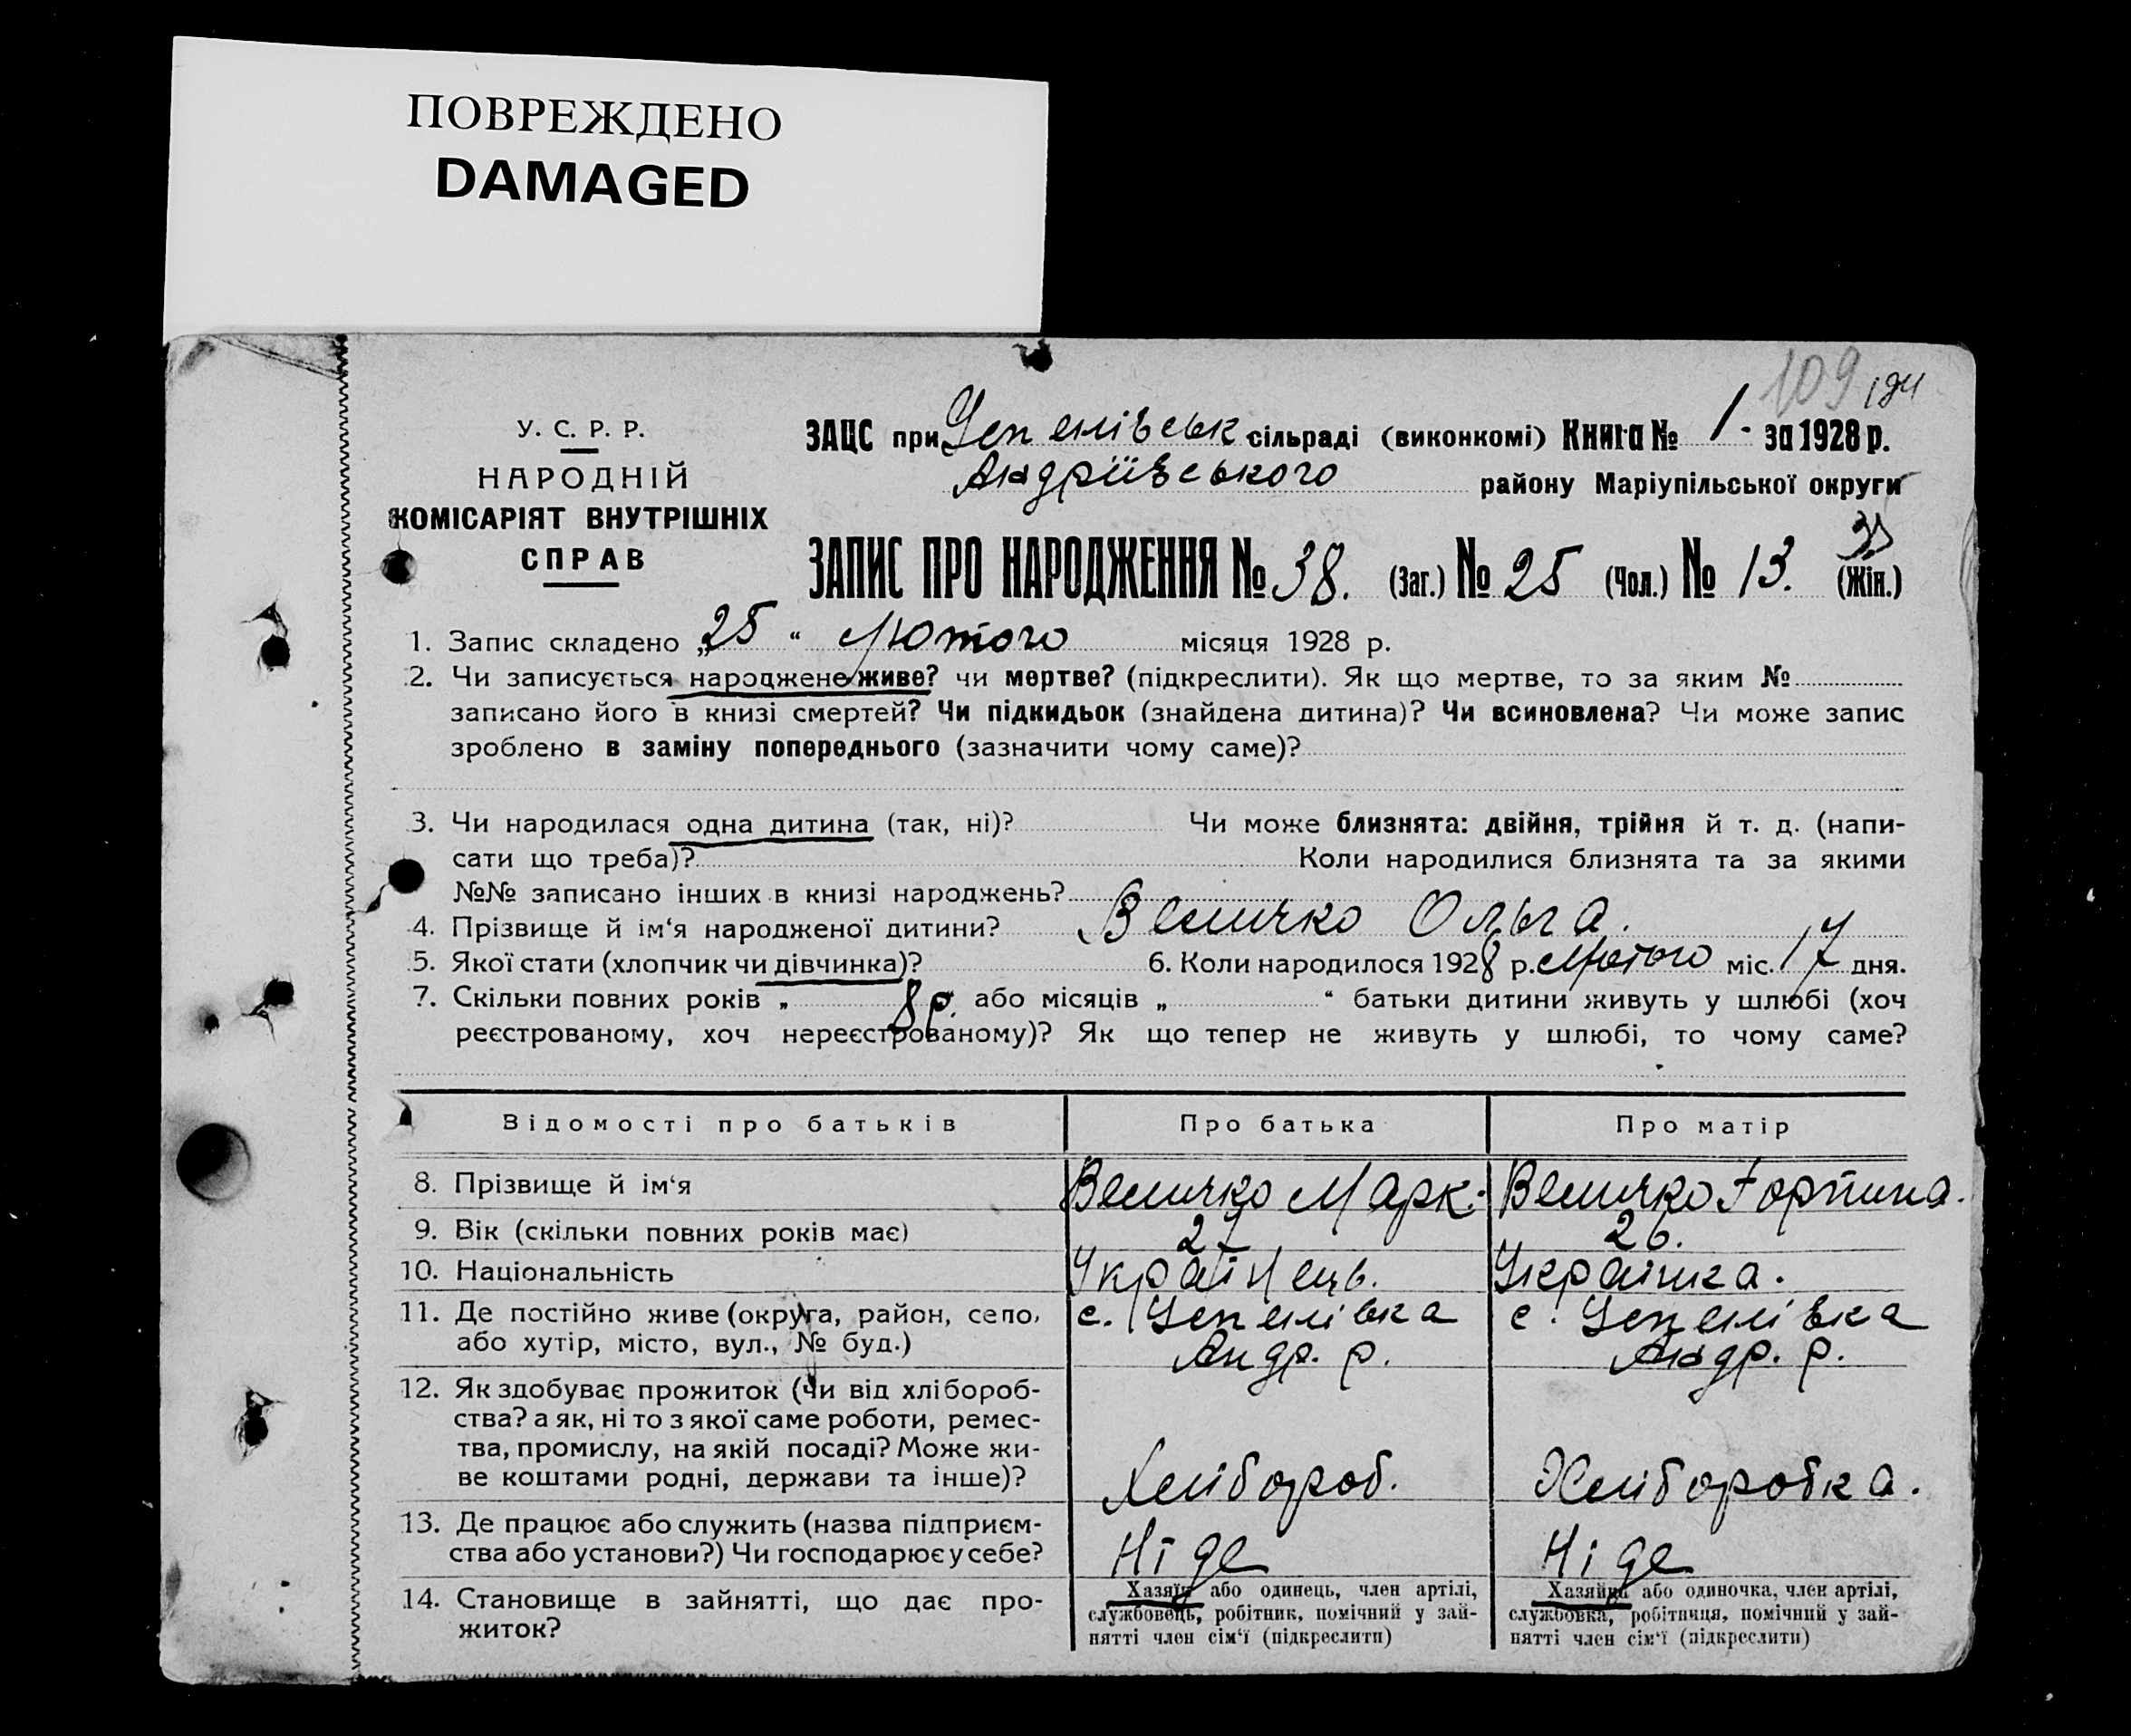 ПОВРЕЖДЕНО
DAMAGED
109
У. С. Р. Р.
НАРОДНІЙ
КОМІСАРІЯТ ВНУТРІШНІХ
СПРАВ
ЗАЦС при Успенівськ сільраді (виконкомі) Книга № 1 - за 1928 р.
Андріївського району Маріупільської округи
ЗАПИС ПРО НАРОДЖЕННЯ № 38. (Заг.) № 25 (Чол.) № 13. (Жін.)
1. Запис складено „25“ Лютого місяця 1928 р.
2. Чи записується народжене живе? чи мертве? (підкреслити). Як що мертве, то за яким №
записано його в книзі смертей? Чи підкидьок (знайдена дитина)? Чи всиновлена? Чи може запис
зроблено в заміну попереднього (зазначити чому саме)?
3. Чи народилася одна дитина (так, ні)? Чи може близнята: двійня, трійня й т. д. (напи-
сати що треба)? Коли народилися близнята та за якими
№№ записано інших в книзі народжень?
4. Прізвище й ім‘я народженої дитини? Величко Ольга.
5. Якої стати (хлопчик чи дівчинка)? 6. Коли народилося 1928 р. Лютого міс. 17 дня.
7. Скільки повних років „ 8 р. або місяців „ “ батьки дитини живуть у шлюбі (хоч
реєстрованому, хоч нереєстрованому)? Як що тепер не живуть у шлюбі, то чому саме?
Відомості про батьків Про батька Про матір
8. Прізвище й ім‘я Величко Марк. Величко Горпина.
9. Вік (скільки повних років має) 27 26.
10. Національність Українець. Українка.
11. Де постійно живе (округа, район, село, с. Успенівка с. Успенівка
або хутір, місто, вул., № буд.) Андр. р. Андр. р.
12. Як здобуває прожиток (чи від хлібороб-
ства? а як, ні то з якої саме роботи, ремес-
тва, промислу, на якій посаді? Може жи-
ве коштами родні, держави та інше)? Хлібороб. Хліборобка.
13. Де працює або служить (назва підприєм-
ства або установи?) Чи господарює у себе? Ніде Ніде
14. Становище в зайнятті, що дає про-
житок?
Хазяїн або одинець, член артілі,
службовець, робітник, помічний у зай-
нятті член сім‘ї (підкреслити)
Хазяйка або одиночка, член артілі,
службовка, робітниця, помічний у зай-
нятті член сім‘ї (підкреслити)